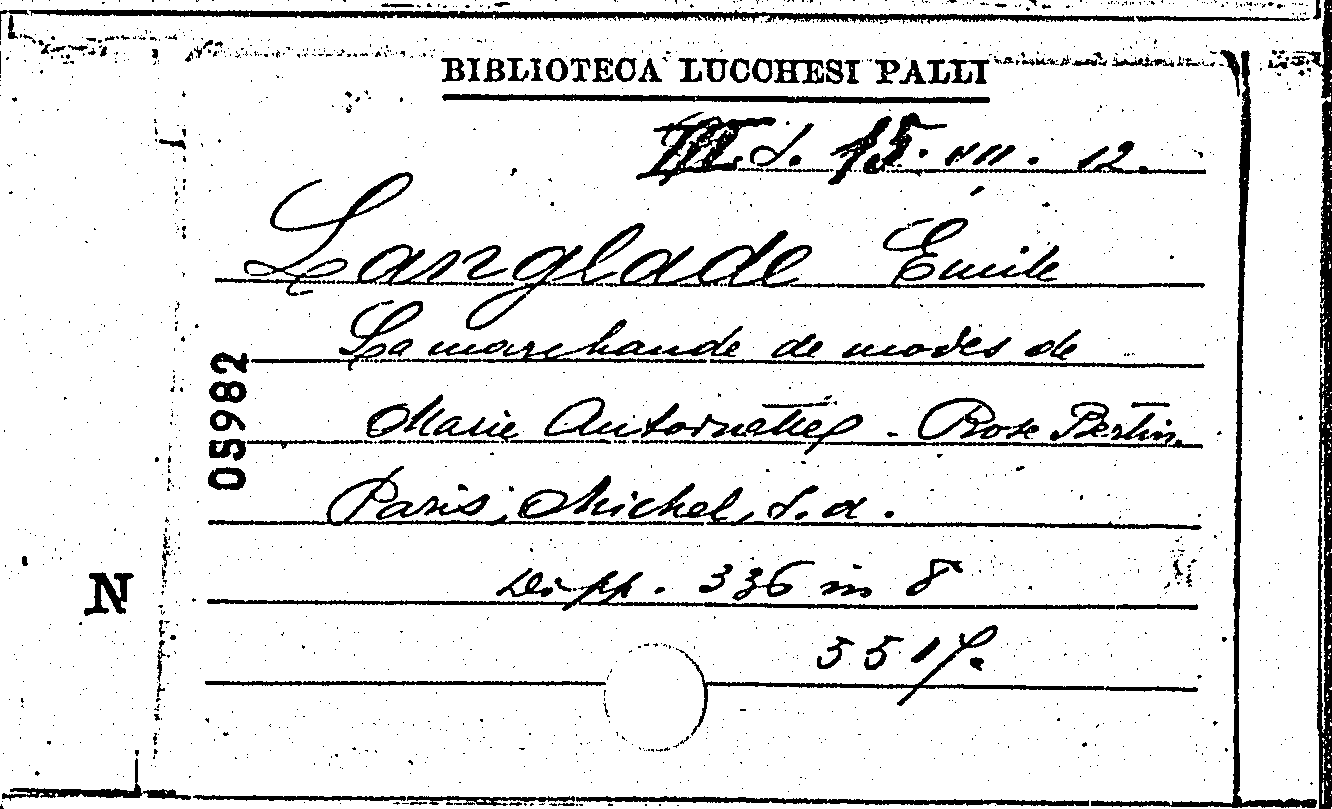 BIBLIOTECA LUCCHESI PALLI
III. S. 15. VII. 12.
Langlade Émile
La marchande de modes de
Marie Antoinette - Rose Bertin.
Paris, Michel, s. d.
Di pp. 336 in 8
5517.
05982
N